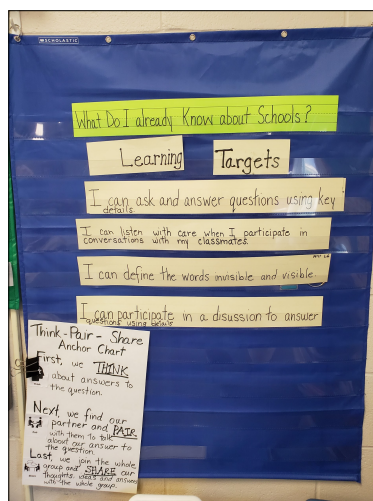 SCHOLASTIC
What Do I already Know about Schools?
Learning Targets
I can ask and answer questions using key
details.
I can listen with care when I participate in
conversations with my classmates.
I can define the words invisible and visible
I can participate in a disussion to answer
questions using details
Think-Pair-Share
Anchor Chart
First, we THINK
about answers to
the question.
Next, we find our
partner and PAIR
with them to talk
about our answer to
the question.
Last, we join the whole
group and SHARE our
thoughts, ideas and answers
with the whole group.